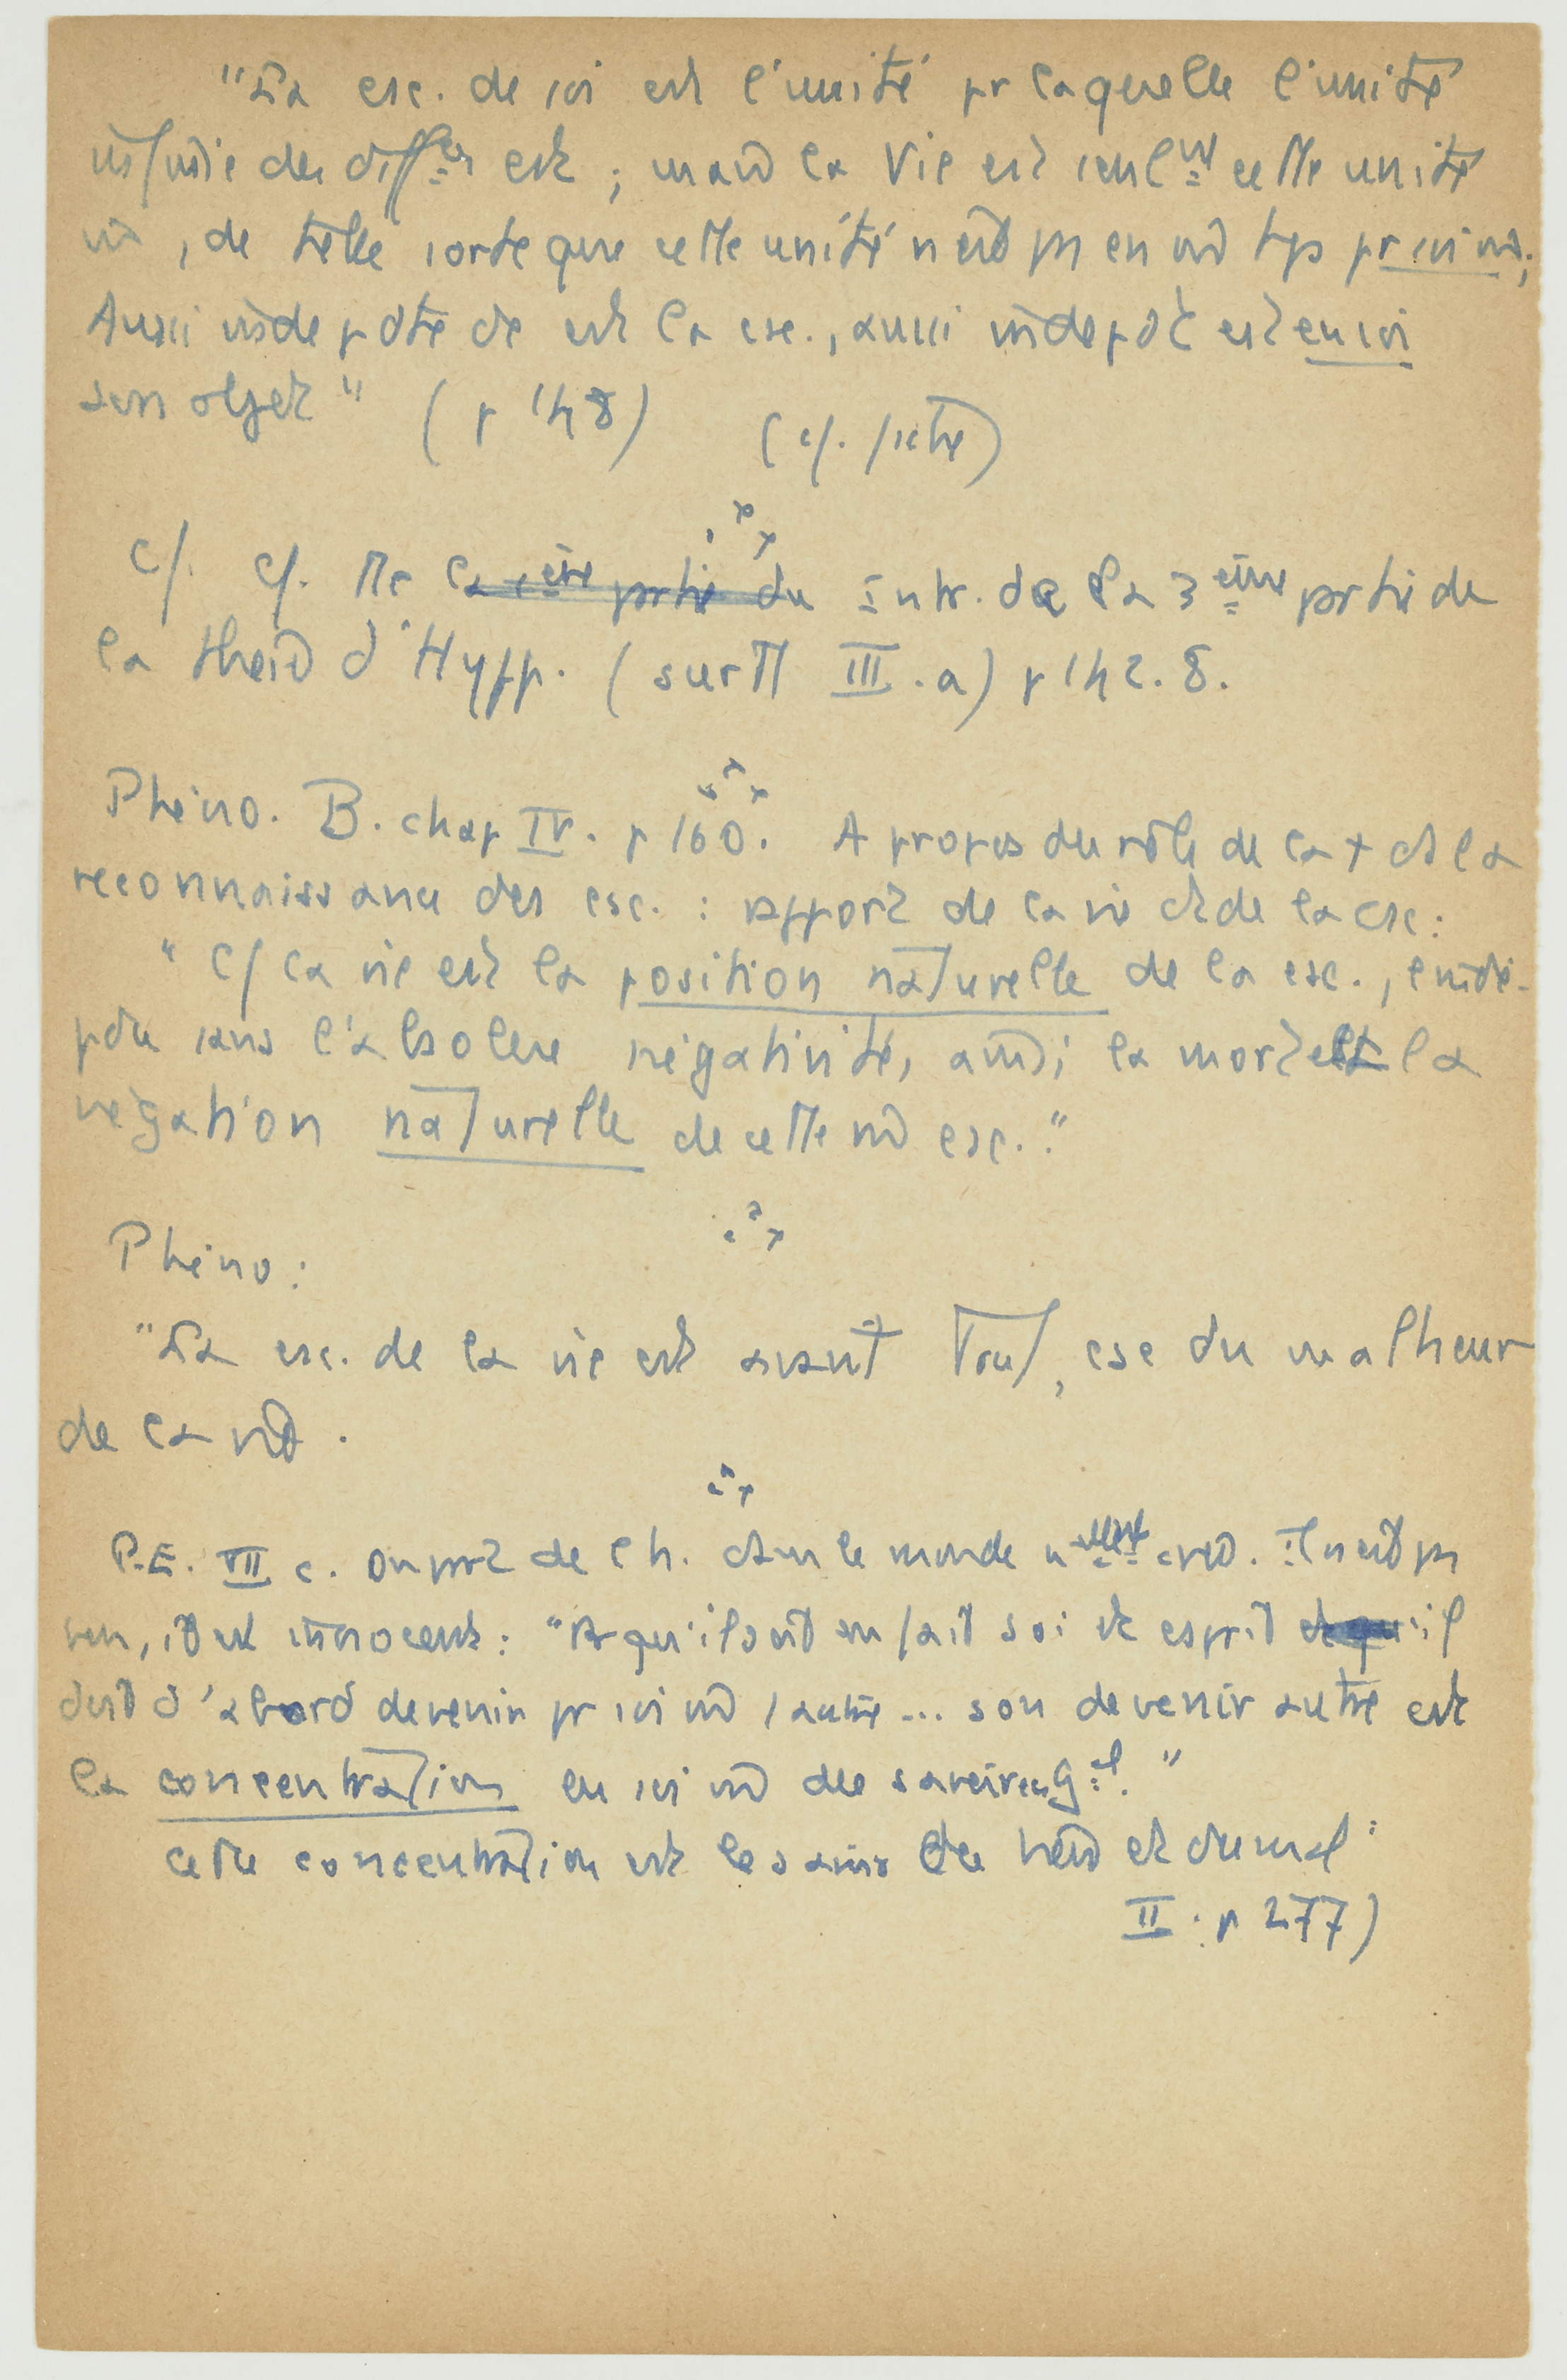 "La csc. de soi est l'unité pr laquelle l'unité
infinie des diff<sup>ces</sup> est ; mais la Vie est seul<sup>nt</sup> cette unité
m̂, de telle sorte que cette unité n'est pas en m̂ tps pr soi m̂.
Aussi indepdte dc est la csc., aussi indepdt est en soi
son objet" (p 148) (cf. fichte)
Cf. cf. tte la 1 ère partie du Intr. de la 3 ème partie de
la thèse d'Hypp. (surtt III. a) p 142. 8.
Phéno. B. chap IV. p 160. A propos du rôle de la + ds la
reconnaissance des csc. : rapport de la vie et de la csc :
" C/ la vie est la position naturelle de la csc., l'indé-
pdce sans l'absolue négativité, ainsi la mort est la
négation naturelle de cette m̂ csc."
Phéno :
"La csc. de la vie est avant tout, csc du malheur
de la vie .
P.E. VII c. On part de l'h. dans le monde créé. Il n'est pas
innocent : " qu'il soit en fait soi et esprit et qu'il
doit d'abord devenir pr soi m̂ l'autre ... son devenir autre est
la concentration en soi m̂ du savoir en gal."
cette concentration est le savoir du bien et du mal :
II . p 277)